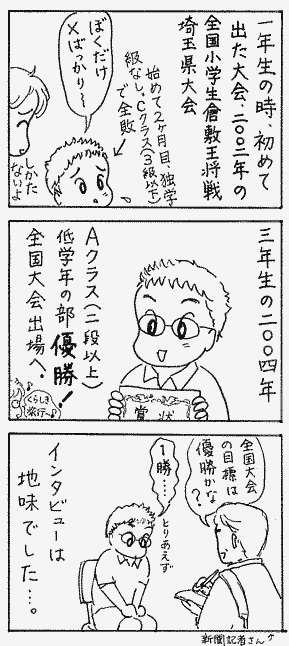 一年生の時、初めて
出た大会、二〇〇二年の
全国小学生倉敷王将戦
埼玉県大会
始めて2ヶ月目、独学
級なし。Cクラス(3級以下)
で全敗
ぼくだけ
×ばっかり〜
しかた
ないよ
三年生の二〇〇四年
Aクラス(二段以上)
低学年の部優勝!
全国大会出場へ。
賞状
くらしき
旅行へ♪
全国大会
の目標は
優勝かな
?
1勝…
とりあえず
インタビューは
地味でした…。
新聞記者さん↑